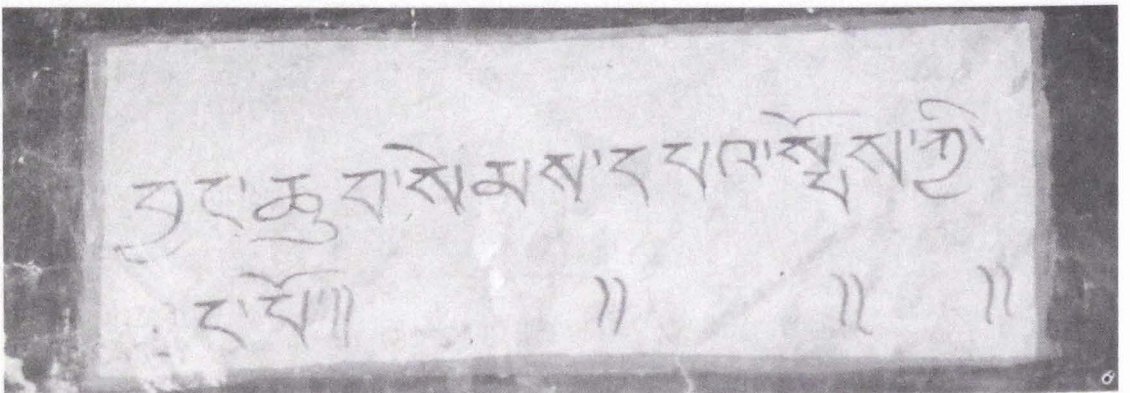 བྱང་ཆུབ་སེམས་དཔའ་སྤོས་ཀྱི་
ང་པོ།། །། །། །།
6